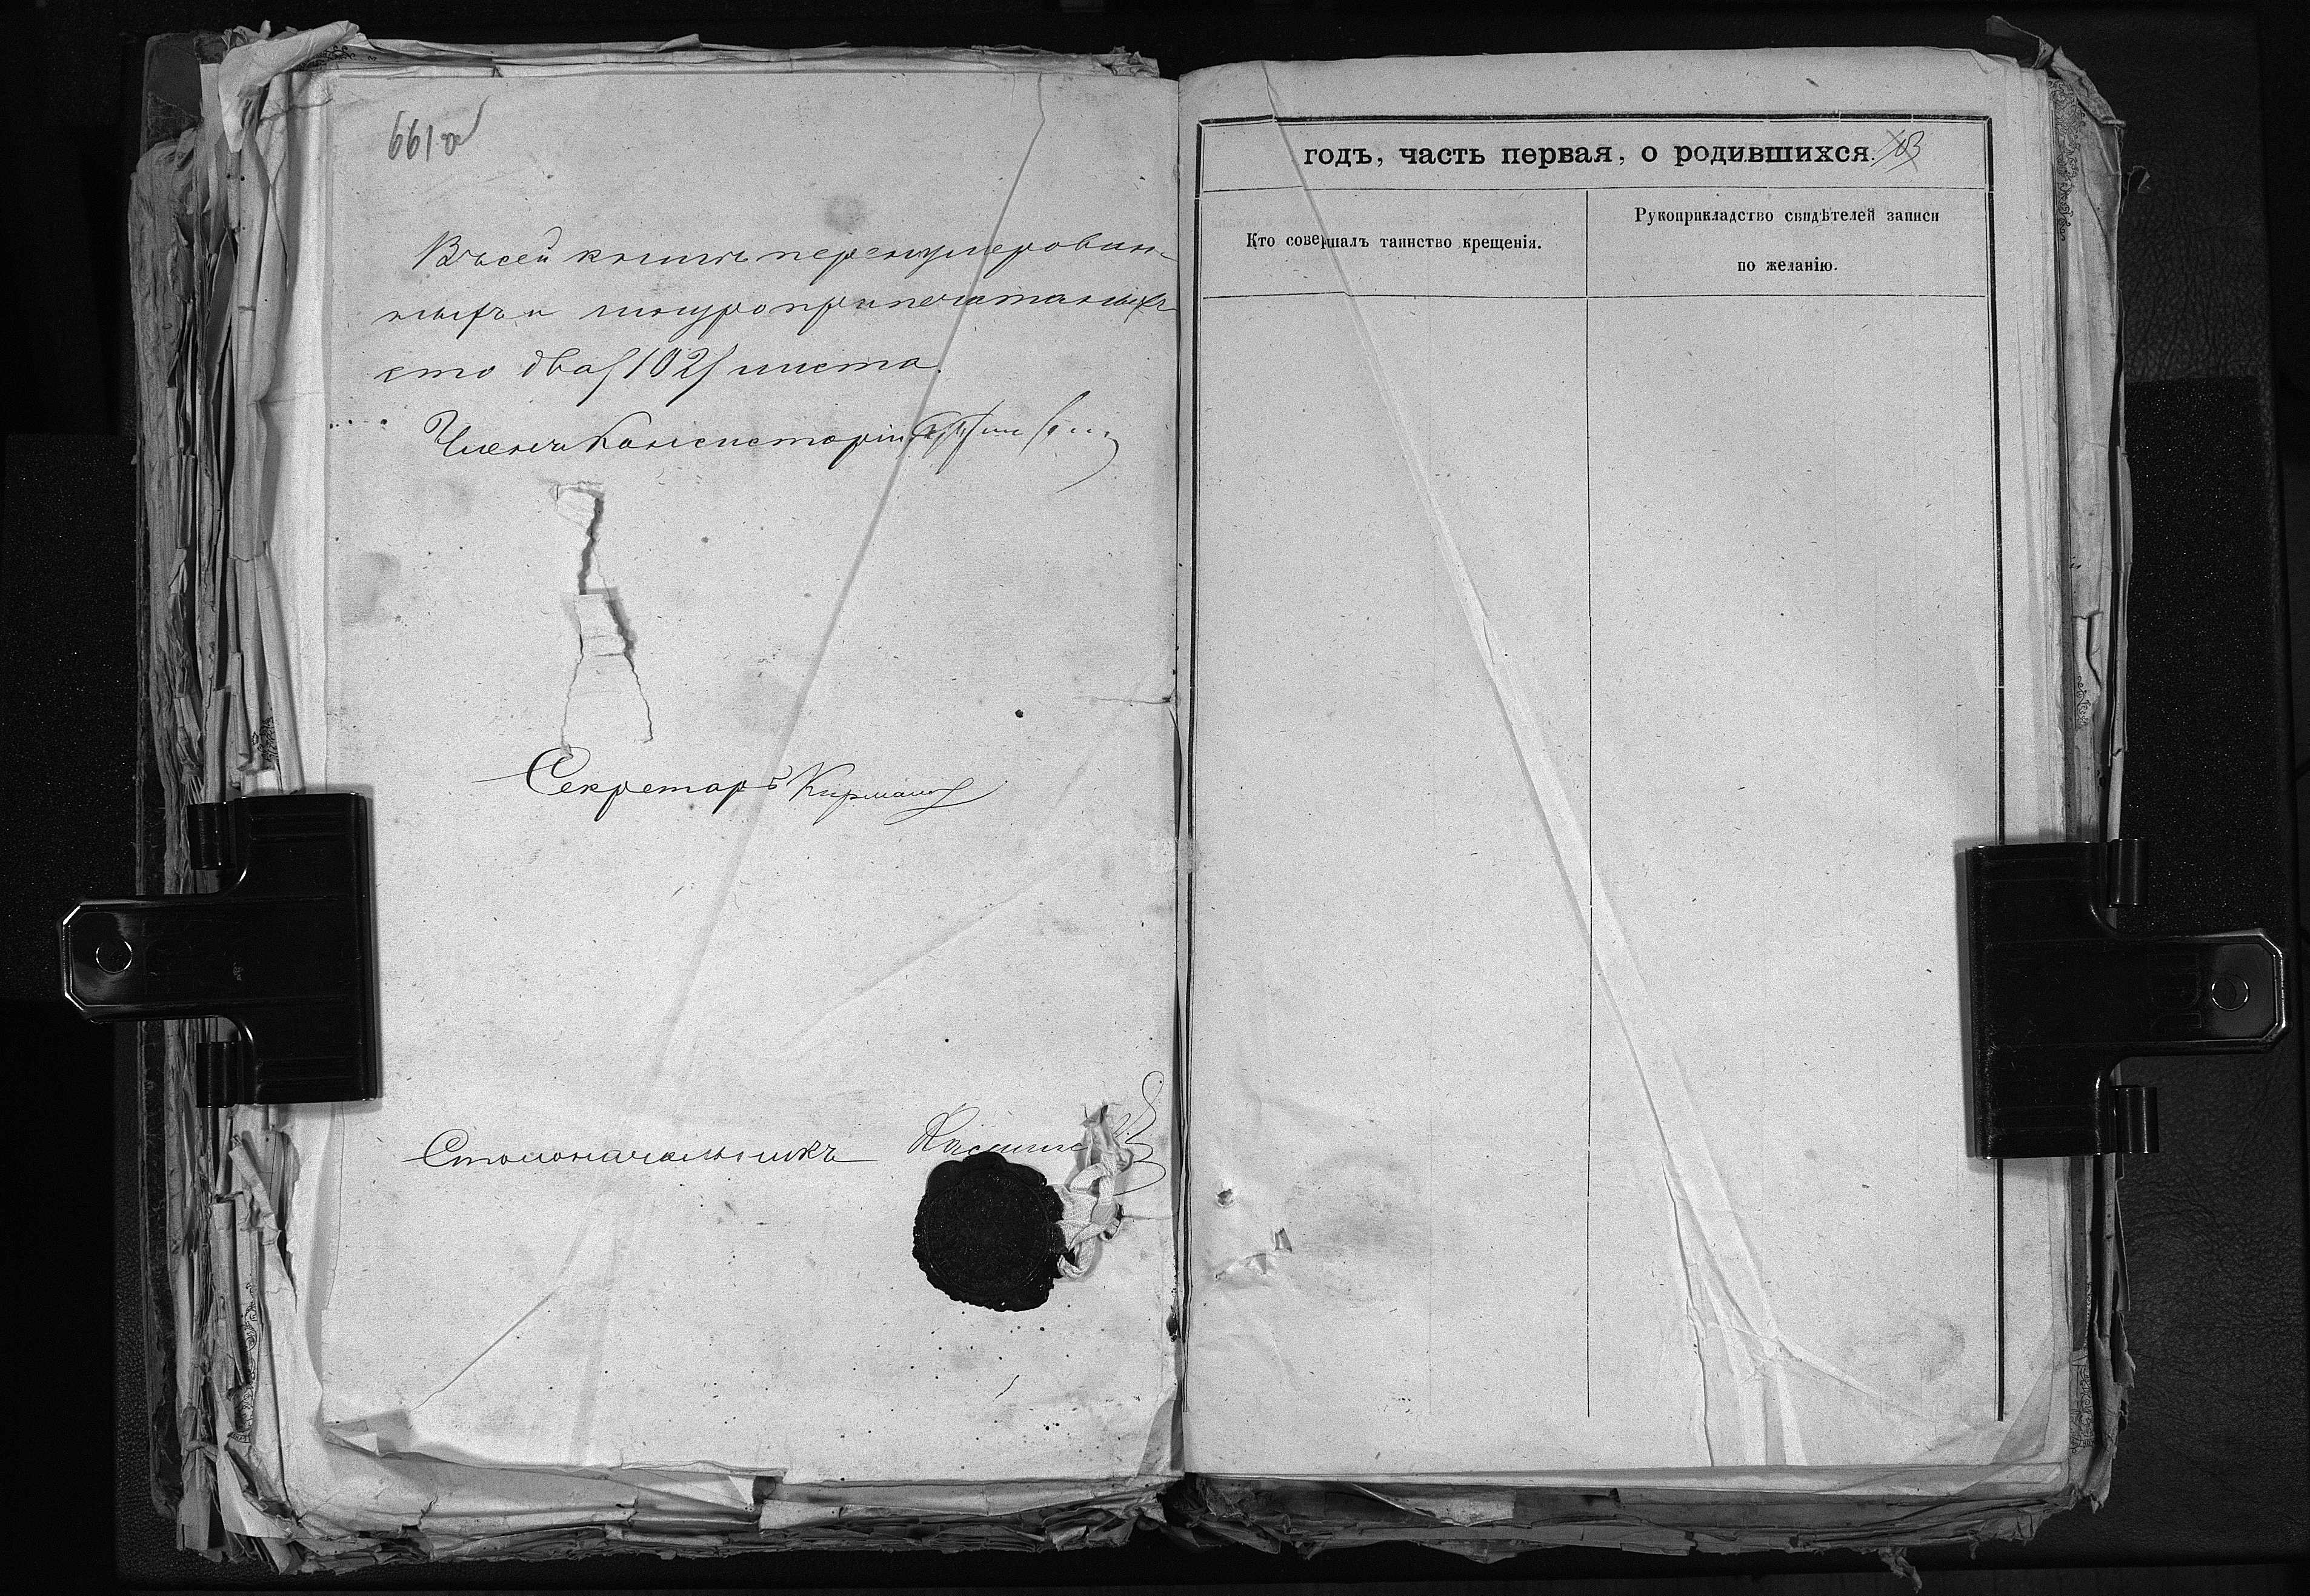 661 об
Въ сей книгѣ перенумерован-
ныхъ и шнуроприпечатаныхъ
сто два /102/ листа.
Членъ Консисторіи
Секретарь
Столоначальникъ
годъ, часть первая, о родившихся. 103
Кто совершалъ таинство крещенія.
Рукоприкладство свидѣтелей записи
по желанію.